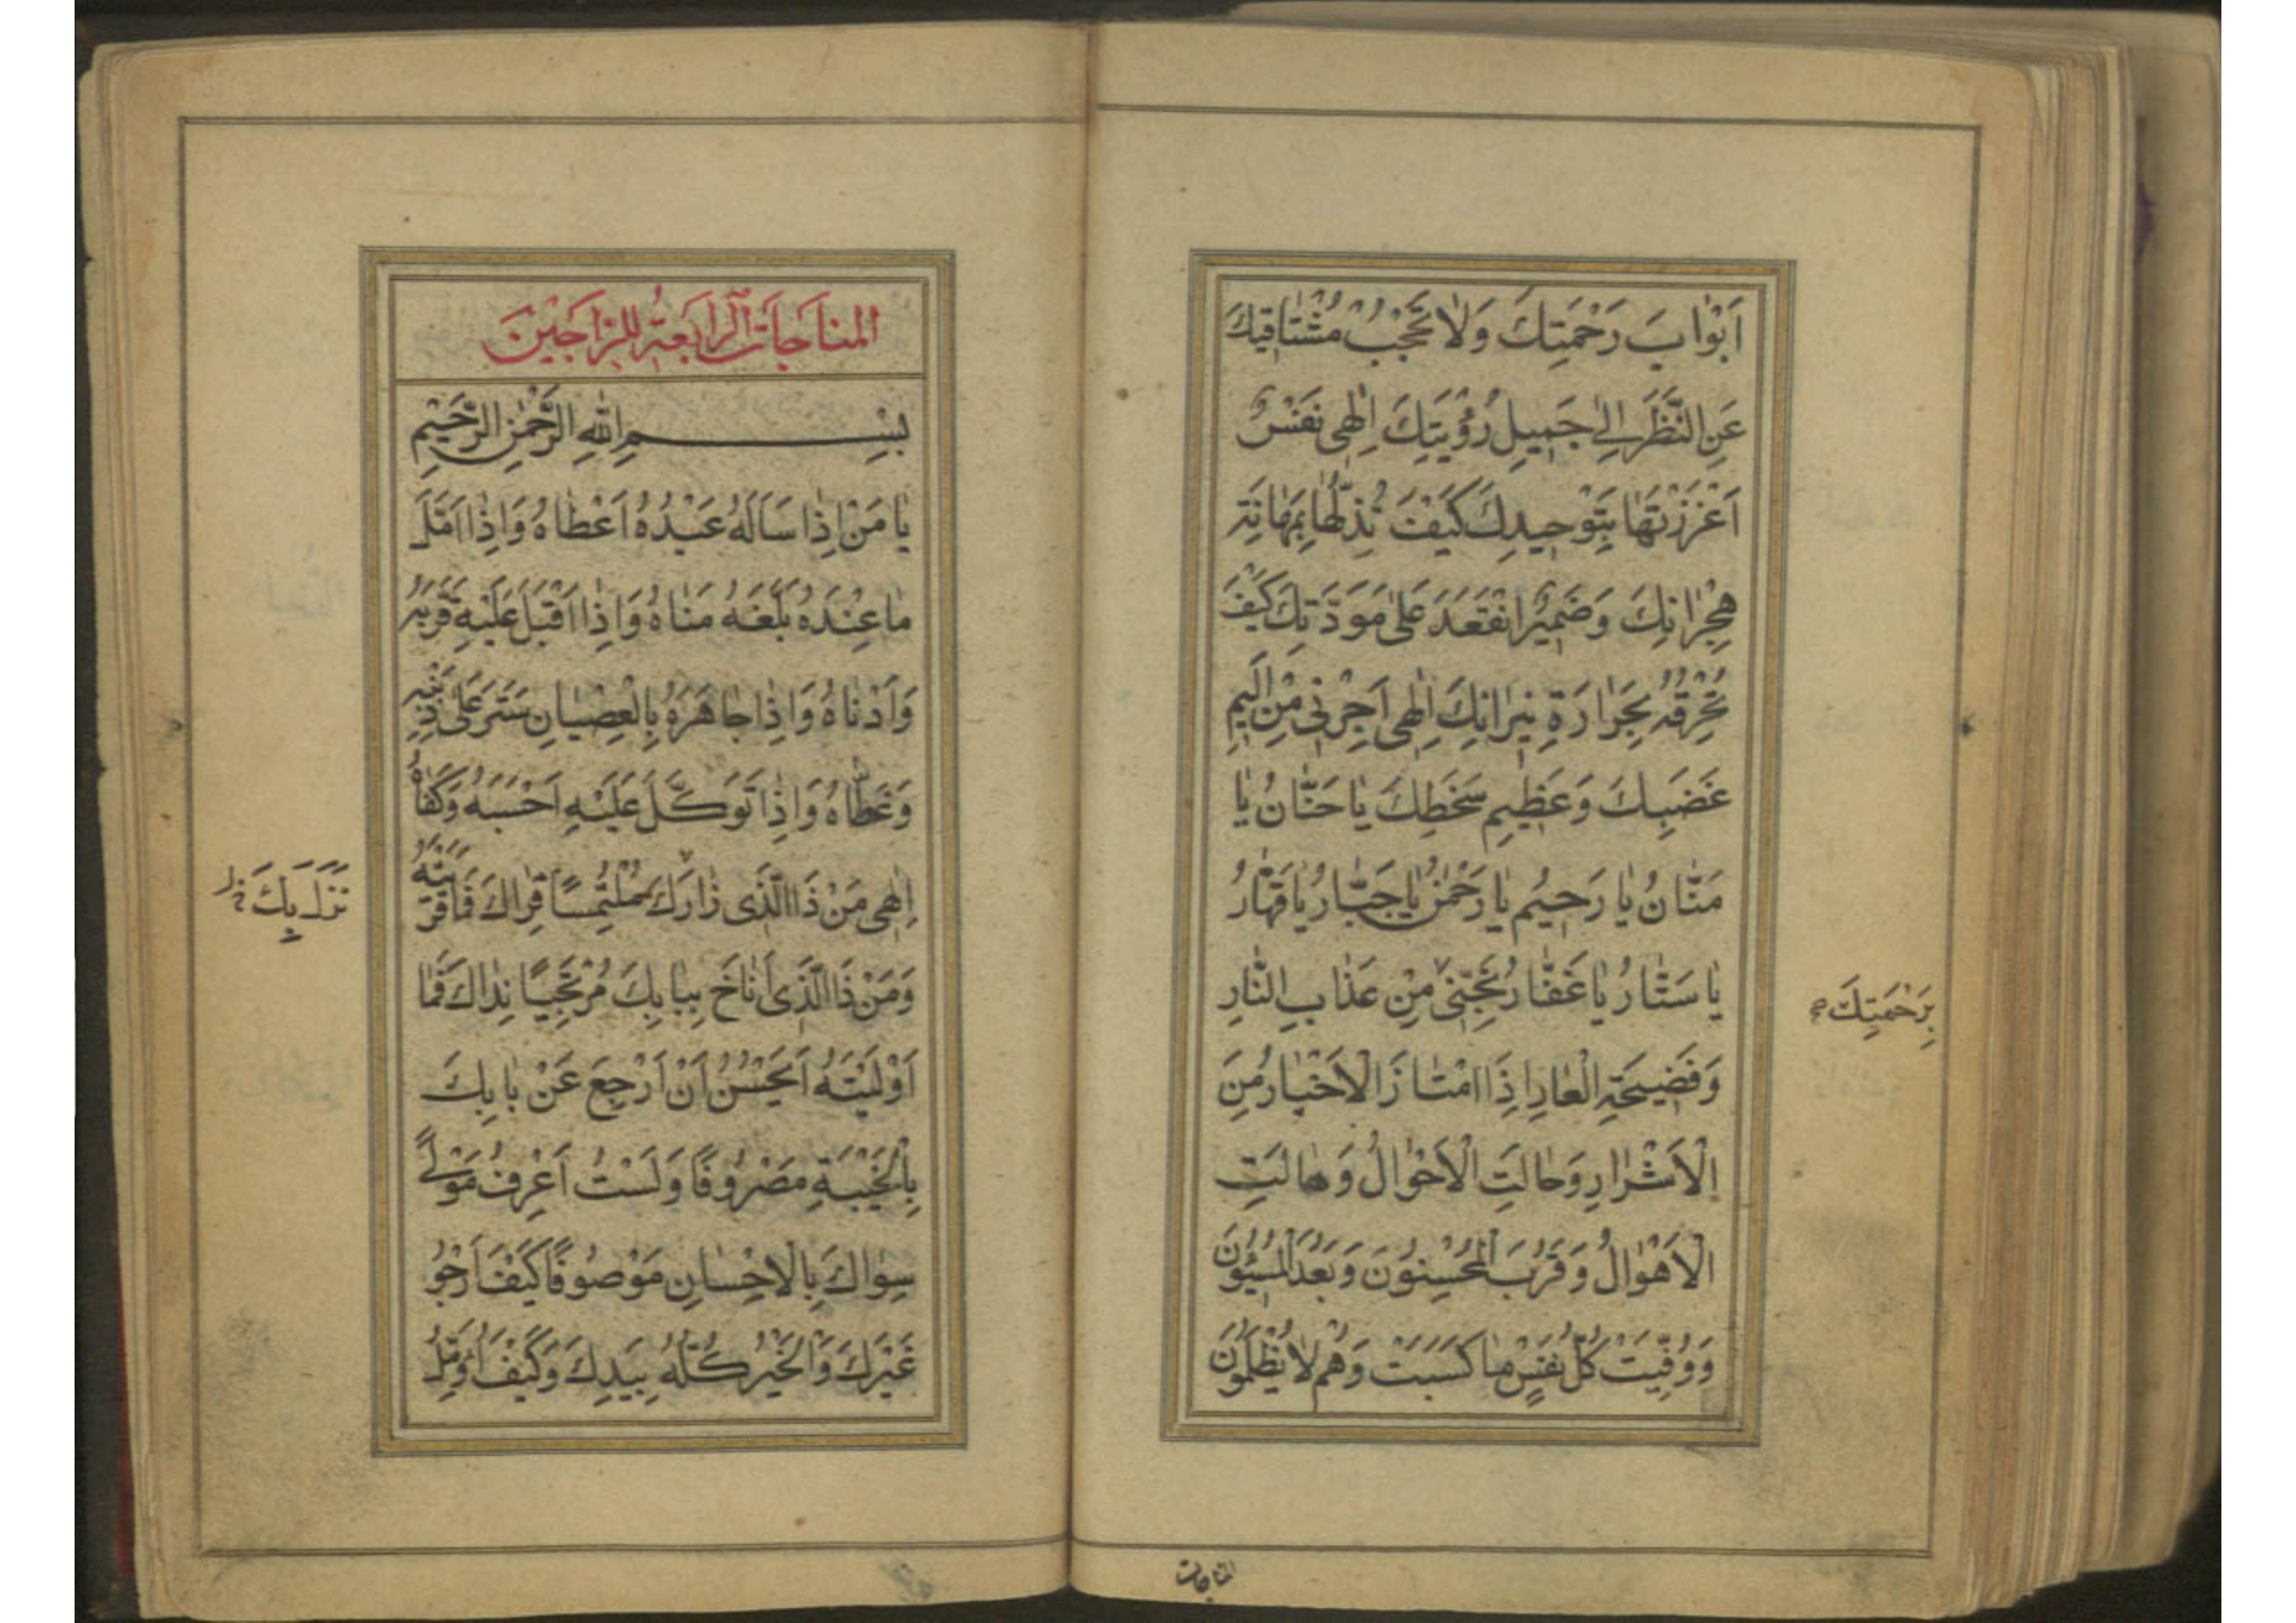 اَبْوابَ رَحْمَتِكَ وَلاٰ تَحْجُبْ مُشْتاقيكَ
عَنِ النَّظَرِ اِلىٰ جَميلِ رُؤْيَتِكَ اِلٰهى نَفْسٌ
اَعْزَزْتَهٰا بِتَوْحيدِكَ كَيْفَ تُذِلُّهٰا بِمَهٰانَةِ
هِجْرٰانِكَ وَضَميرٌ انْعَقَدَ عَلىٰ مَوَدَّتِكَ كَيْفَ
تُحْرِقُهُ بِحَرٰارَةِ نيرٰانِكَ اِلٰهى اَجِرْنى مِنْ اَليمِ
غَضَبِكَ وَعَظيمِ سَخَطِكَ يٰا حَنّٰانُ يٰا
مَنّٰانُ يٰا رَحيمُ يٰا رَحْمٰنُ يٰا جَبّٰارُ يٰا قَهّٰارُ
يٰا سَتّٰارُ يٰا غَفّٰارُ نَجِّنى مِنْ عَذٰابِ النّٰارِ
بِرَحْمَتِكَ
وَفَضيحَةِ الْعٰارِ اِذَا امْتٰازَ الْاَخْيٰارُ مِنَ
الْاَشْرٰارِ وَحٰالَتِ الْاَحْوٰالُ وَهٰالَتِ
الْاَهْوٰالُ وَقَرُبَ الْمُحْسِنُونَ وَبَعُدَ الْمُسيئُونَ
وَوُفِّيَتْ كُلُّ نَفْسٍ مٰا كَسَبَتْ وَهُمْ لاٰ يُظْلَمُونَ
المناجات
المناجات الرابعة للراجين
بِسْمِ اللهِ الرَّحْمٰنِ الرَّحيمِ
يٰا مَنْ اِذٰا سَاَلَهُ عَبْدُهُ اَعْطٰاهُ وَاِذٰا اَمَّلَ
مٰا عِنْدَهُ بَلَّغَهُ مُنٰاهُ وَاِذٰا اَقْبَلَ عَلَيْهِ قَرَّبَهُ
وَاَدْنٰاهُ وَاِذٰا جٰاهَرَهُ بِالْعِصْيٰانِ سَتَرَ عَلىٰ ذَنْبِهِ
وَغَطّٰاهُ وَاِذٰا تَوَكَّلَ عَلَيْهِ اَحْسَبَهُ وَكَفٰاهُ
اِلٰهى مَنْ ذَا الَّذى زٰارَكَ مُلْتَمِساً قِرٰاكَ فَمٰا قَرَيْتَهُ
نَزَلَ بِكَ خل
وَمَنْ ذَا الَّذى اَنٰاخَ بِبٰابِكَ مُرْتَجِياً نِدٰاكَ فَمٰا
اَوْلَيْتَهُ اَيَحْسُنُ اَنْ اَرْجِعَ عَنْ بٰابِكَ
بِالْخَيْبَةِ مَصْرُوفاً وَلَسْتُ اَعْرِفُ مَوْلىً
سِوٰاكَ بِالْاِحْسٰانِ مَوْصُوفاً كَيْفَ اَرْجُو
غَيْرَكَ وَالْخَيْرُ كُلُّهُ بِيَدِكَ وَكَيْفَ اُؤَمِّلُ